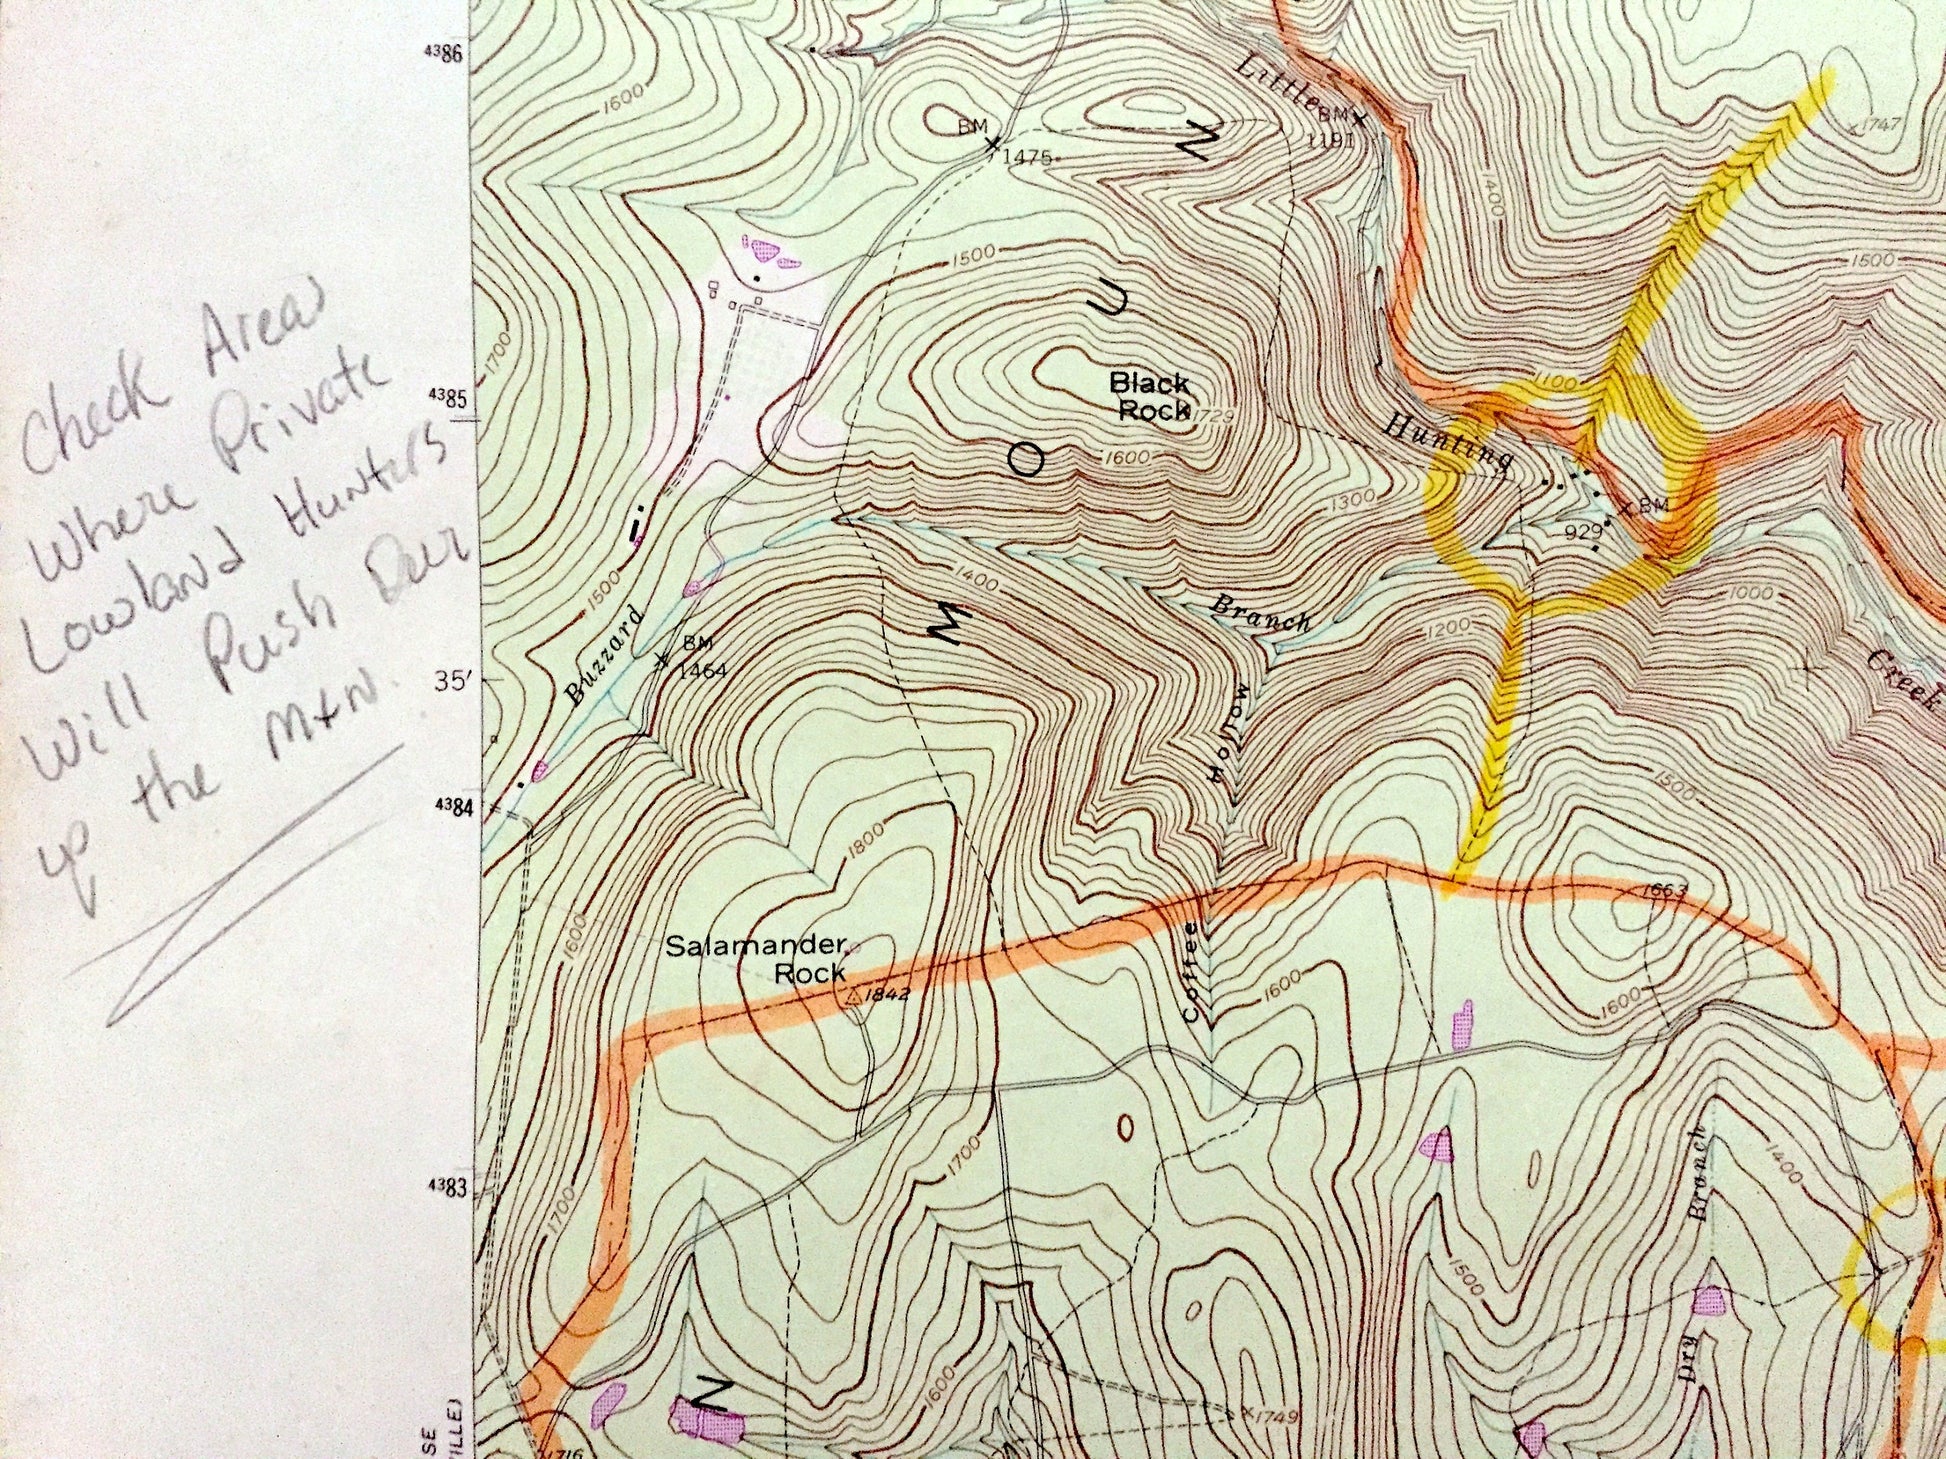 Check Areas
Where Private
Lowland Hunters
Will Push Deer
up the Mtn.
4386
4385
35'
4384
4383
SE
VILLE)
1600
BM
1475
Little
BM
1191
N
1400
1747
1500
1500
1700
U
Black
Rock
1729
1100
Hunting
O
1600
1300
BM
929
1500
1400
1000
Buzzard
M
Branch
1200
BM
1464
Creek
Hollow
1500
1800
1663
1600
Salamander
Rock
1842
Coffee
1600
1600
1700
1700
Branch
1400
1500
Dry
N
1600
1749
1716